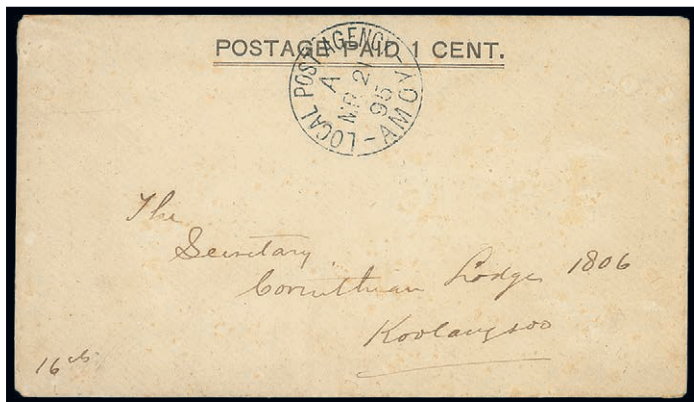 POSTAGE PAID 1 CENT.
LOCAL POST AGENCY - AMOY -
A
MR 21
95
The
Secretary
Corinthian Lodge 1806
Koolangsoo
16 cts